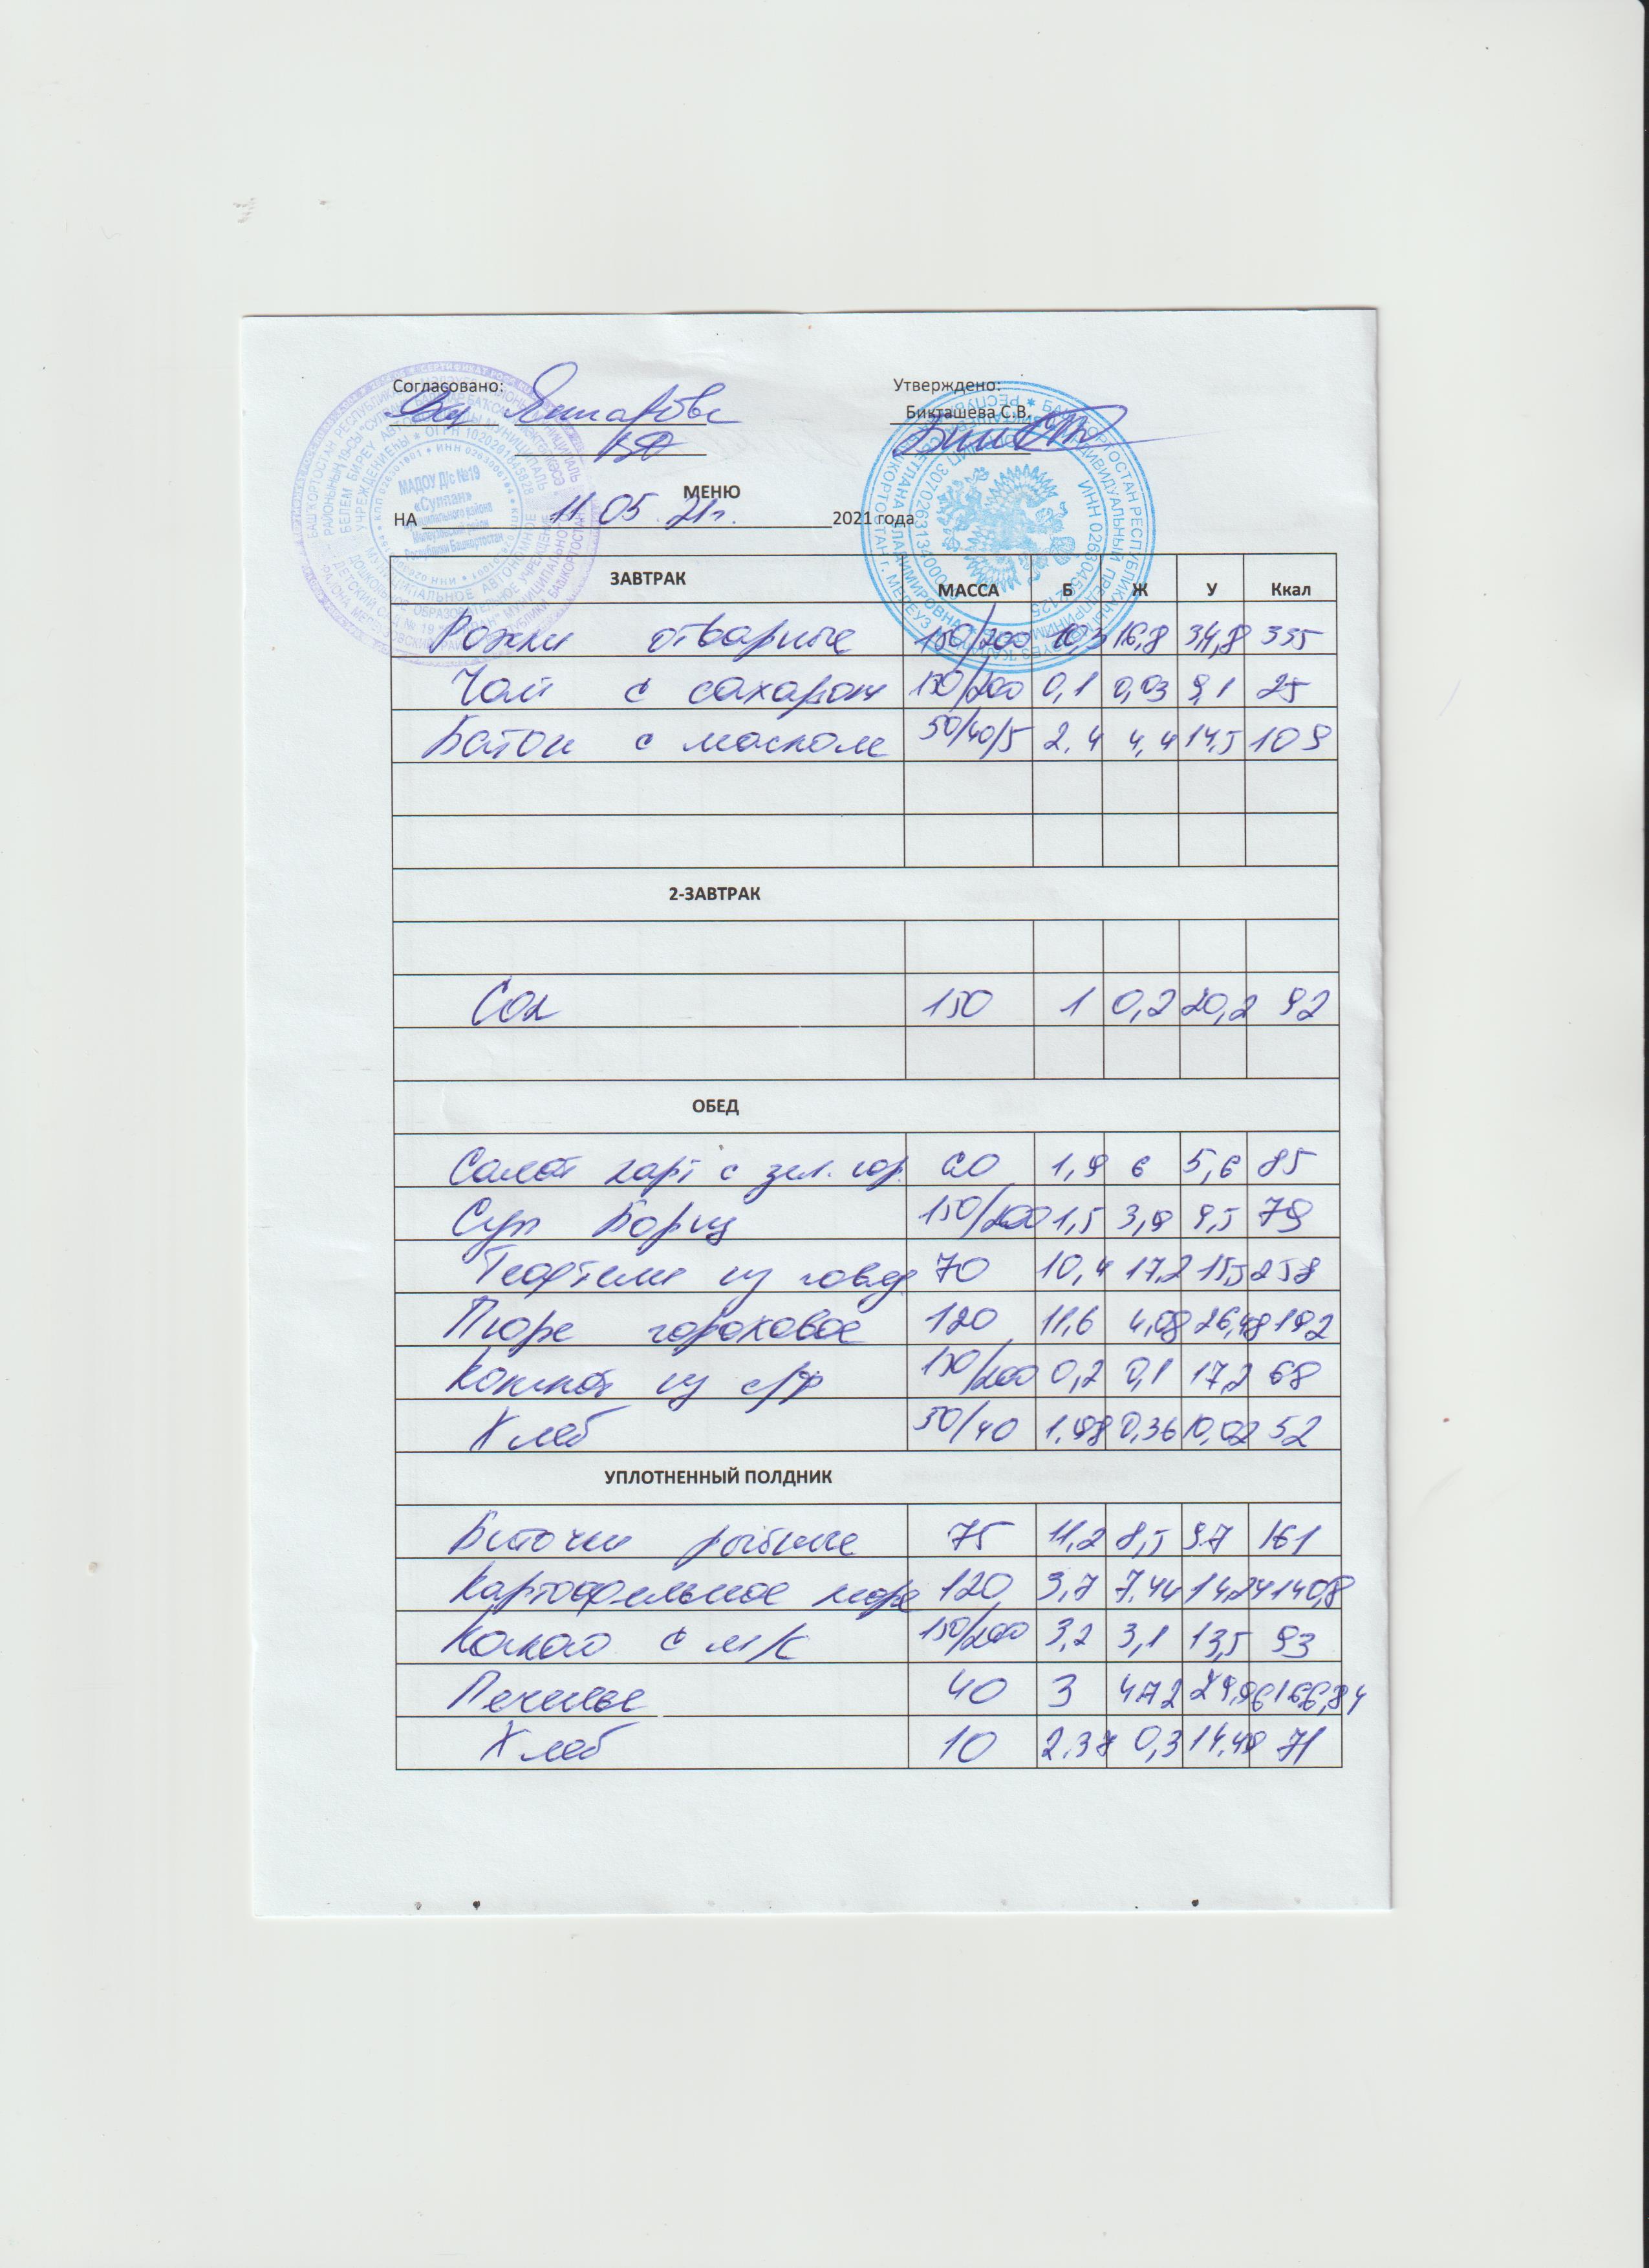 Согласовано: Утверждено:
Бикташева С.В.
МЕНЮ
НА 11 05. 21г. 2021 года
МАДОУ Д/с №19
ЗАВТРАК МАССА Б Ж У Ккал
Рожки отварные 150/200 10,3 16,8 34,8 335
Чай с сахаром 150/200 0,1 0,03 9,1 25
Батон с маслом 30/40/5 2.4 4,4 14,5 109
2-ЗАВТРАК
Сок 150 1 0,2 20,2 92
ОБЕД
Салат карт с зел. гор. 60 1,9 6 5,6 85
Суп Борщ 150/200 1,5 3,9 9,5 79
Тефтели из говяд 70 10,4 17,2 15,5 258
Пюре гороховое 120 11,6 4,08 26,48 192
Компот из с/ф 150/200 0,2 0,1 17,2 68
Хлеб 30/40 1.98 0,36 10,02 52
УПЛОТНЕННЫЙ ПОЛДНИК
Биточки рыбные 75 11,2 8,5 9.7 161
Картофельное пюре 120 3,7 7.44 14,24 140,8
Какао с м/к 150/200 3.2 3,1 13,5 93
Печенье 40 3 4.72 29,96 166,84
Хлеб 10 2.37 0,3 14.49 71